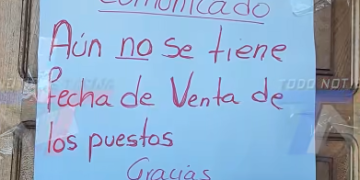 Comunicado
Aún no se tiene
fecha de Venta de
los puestos
Gracias
TODO NOTI